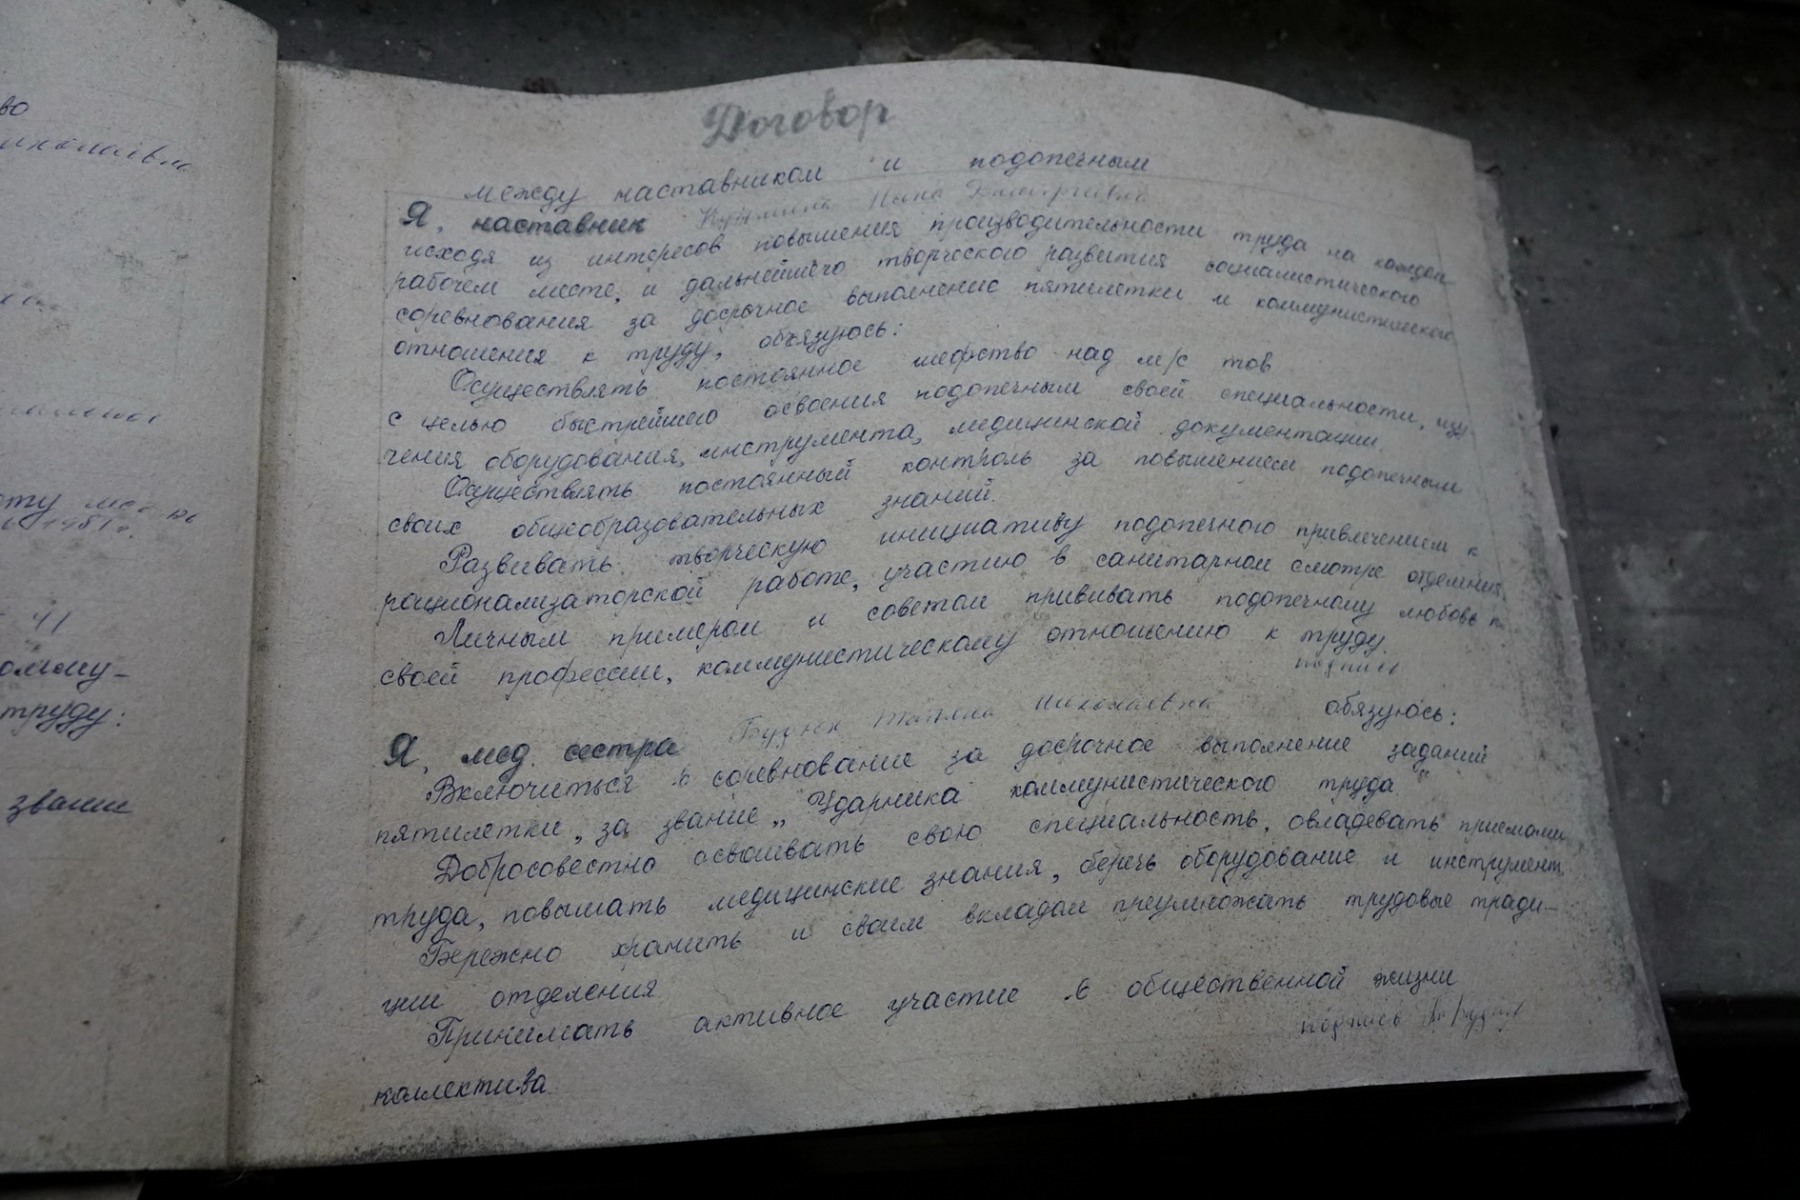 во
иколаевна
1981г.
41
омму-
труду:
звание
Договор
между наставником и подопечным
Я, наставник
исходя из интересов повышения производительности труда на каждом
рабочем месте, и дальнейшего творческого развития социалистического
соревнования за досрочное выполнение пятилетки и коммунистического
отношения к труду, обязуюсь:
Осуществлять постоянное шефство над м/с тов
с целью быстрейшего освоения подопечным своей специальности, изу-
чения оборудования, инструмента, медицинской документации.
Осуществлять постоянный контроль за повышением подопечным
своих общеобразовательных знаний.
Развивать творческую инициативу подопечного привлечением к
рационализаторской работе, участию в санитарном смотре отделения.
Личным примером и советом прививать подопечному любовь к
своей профессии, коммунистическому отношению к труду.
подпись
Я, мед. сестра Будник Татьяна Николаевна обязуюсь:
Включиться в соревнование за досрочное выполнение заданий
пятилетки, за звание „Ударника коммунистического труда"
Добросовестно осваивать свою специальность, овладевать приемами
труда, повышать медицинские знания, беречь оборудование и инструмент.
Бережно хранить и своим вкладом преумножать трудовые тради-
ции отделения
Принимать активное участие в общественной жизни
подпись
коллектива